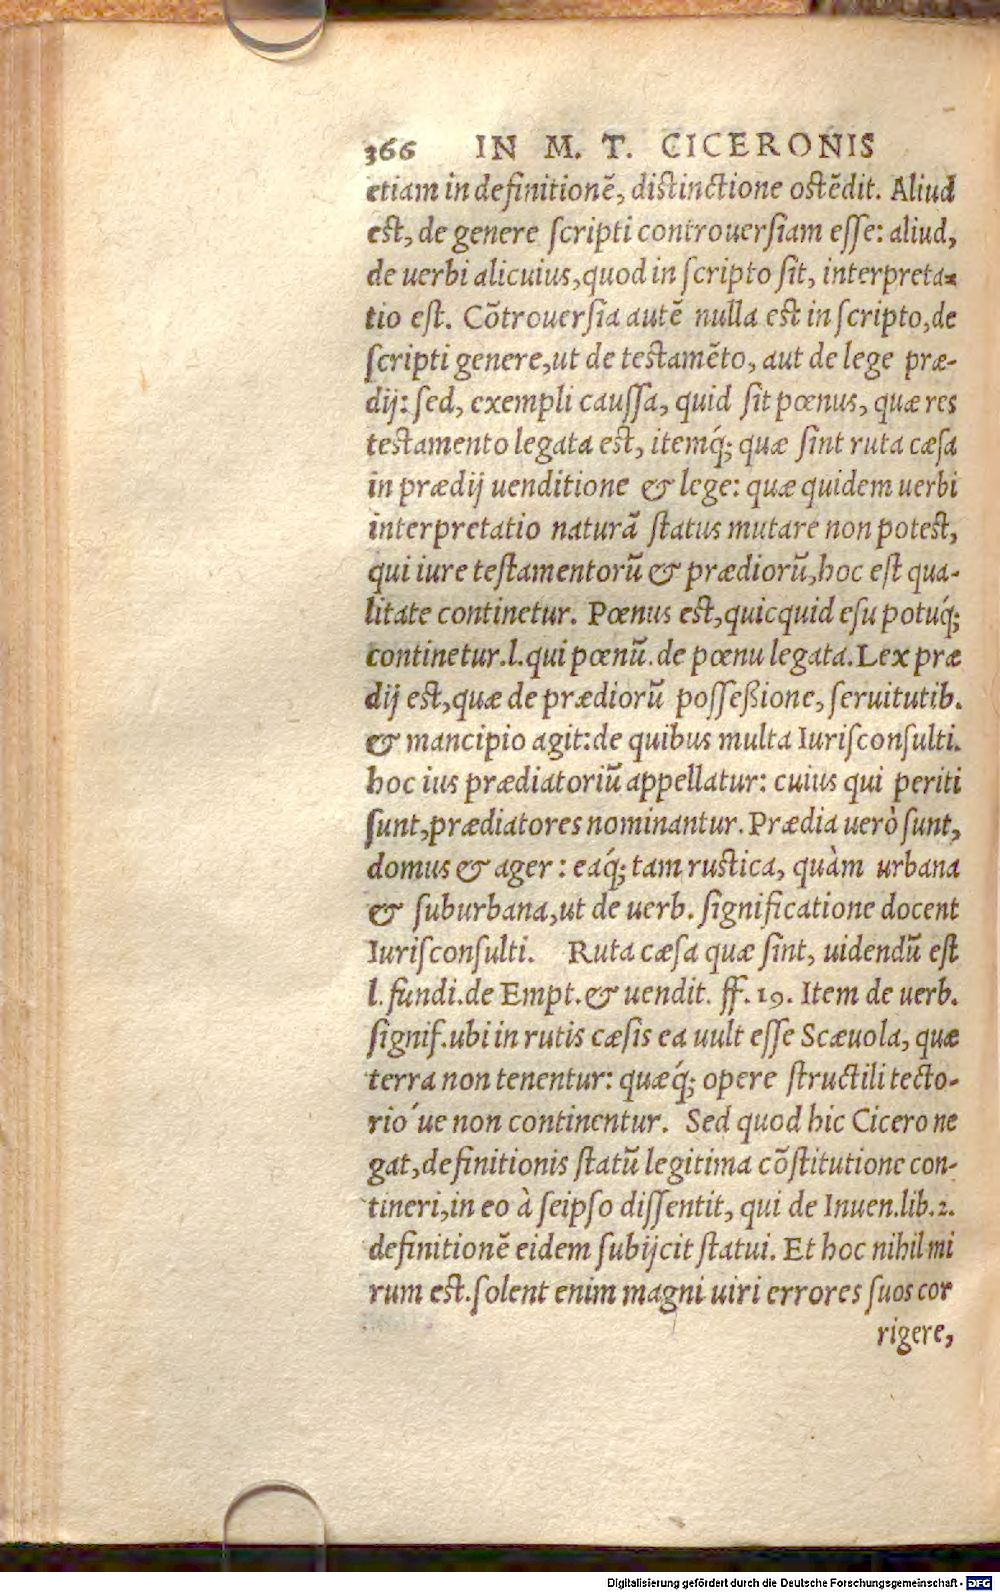 366 IN M. T. CICERONIS
etiam in definitionẽ, distinctione ostẽdit. Aliud
est, de genere scripti controuersiam esse: aliud,
de uerbi alicuius, quod in scripto sit, interpreta-
tio est. Cõtrouersia autẽ nulla est in scripto, de
scripti genere, ut de testamẽto, aut de lege præ-
dij: sed, exempli caussa, quid sit pœnus, quæ res
testamento legata est, itemq́; quæ sint ruta cæsa
in prædij uenditione & lege: quæ quidem uerbi
interpretatio naturã status mutare non potest,
qui iure testamentorũ & prædiorũ, hoc est qua-
litate continetur. Pœnus est, quicquid esu potuq́;
continetur. l. qui pœnũ. de pœnu legata. Lex præ
dij est, quæ de prædiorũ posseßione, seruitutib.
& mancipio agit: de quibus multa Iurisconsulti.
hoc ius prædiatoriũ appellatur: cuius qui periti
sunt, prædiatores nominantur. Prædia uerò sunt,
domus & ager: eaq́; tam rustica, quàm urbana
& suburbana, ut de uerb. significatione docent
Iurisconsulti. Ruta cæsa quæ sint, uidendũ est
l. fundi. de Empt. & uendit. ff. 19. Item de uerb.
signif. ubi in rutis cæsis ea uult esse Scæuola, quæ
terra non tenentur: quæq́; opere structili tecto-
rio´ue non continentur. Sed quod hic Cicero ne
gat, definitionis statũ legitima cõstitutione con-
tineri, in eo à seipso dissentit, qui de Inuen. lib. 2.
definitionẽ eidem subijcit statui. Et hoc nihil mi
rum est. solent enim magni uiri errores suos cor
rigere,
Digitalisierung gefördert durch die Deutsche Forschungsgemeinschaft - DFG